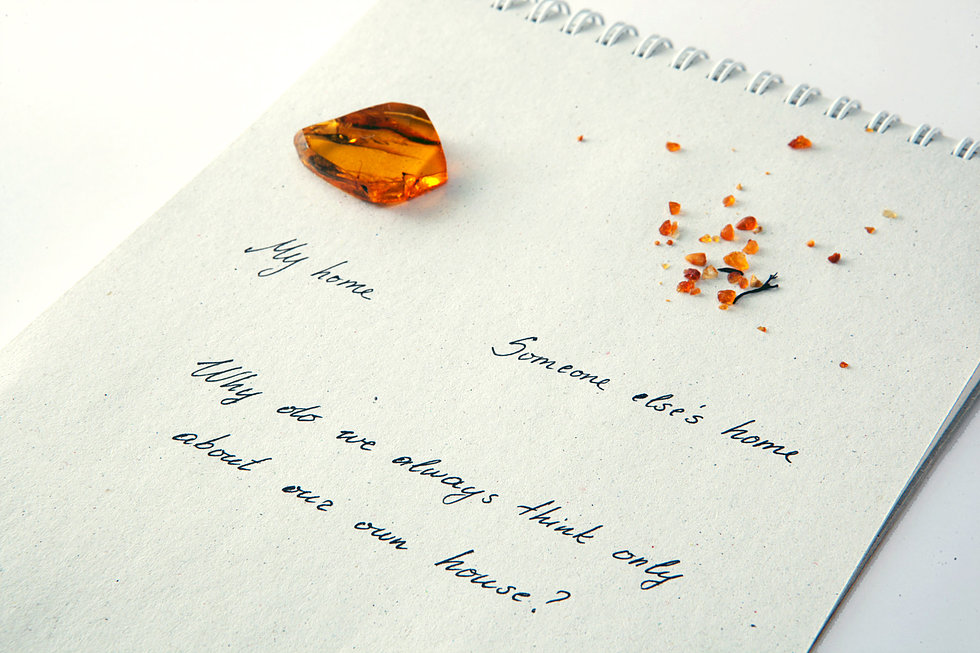 My home
Someone else's home
Why do we always think only
about our own house?